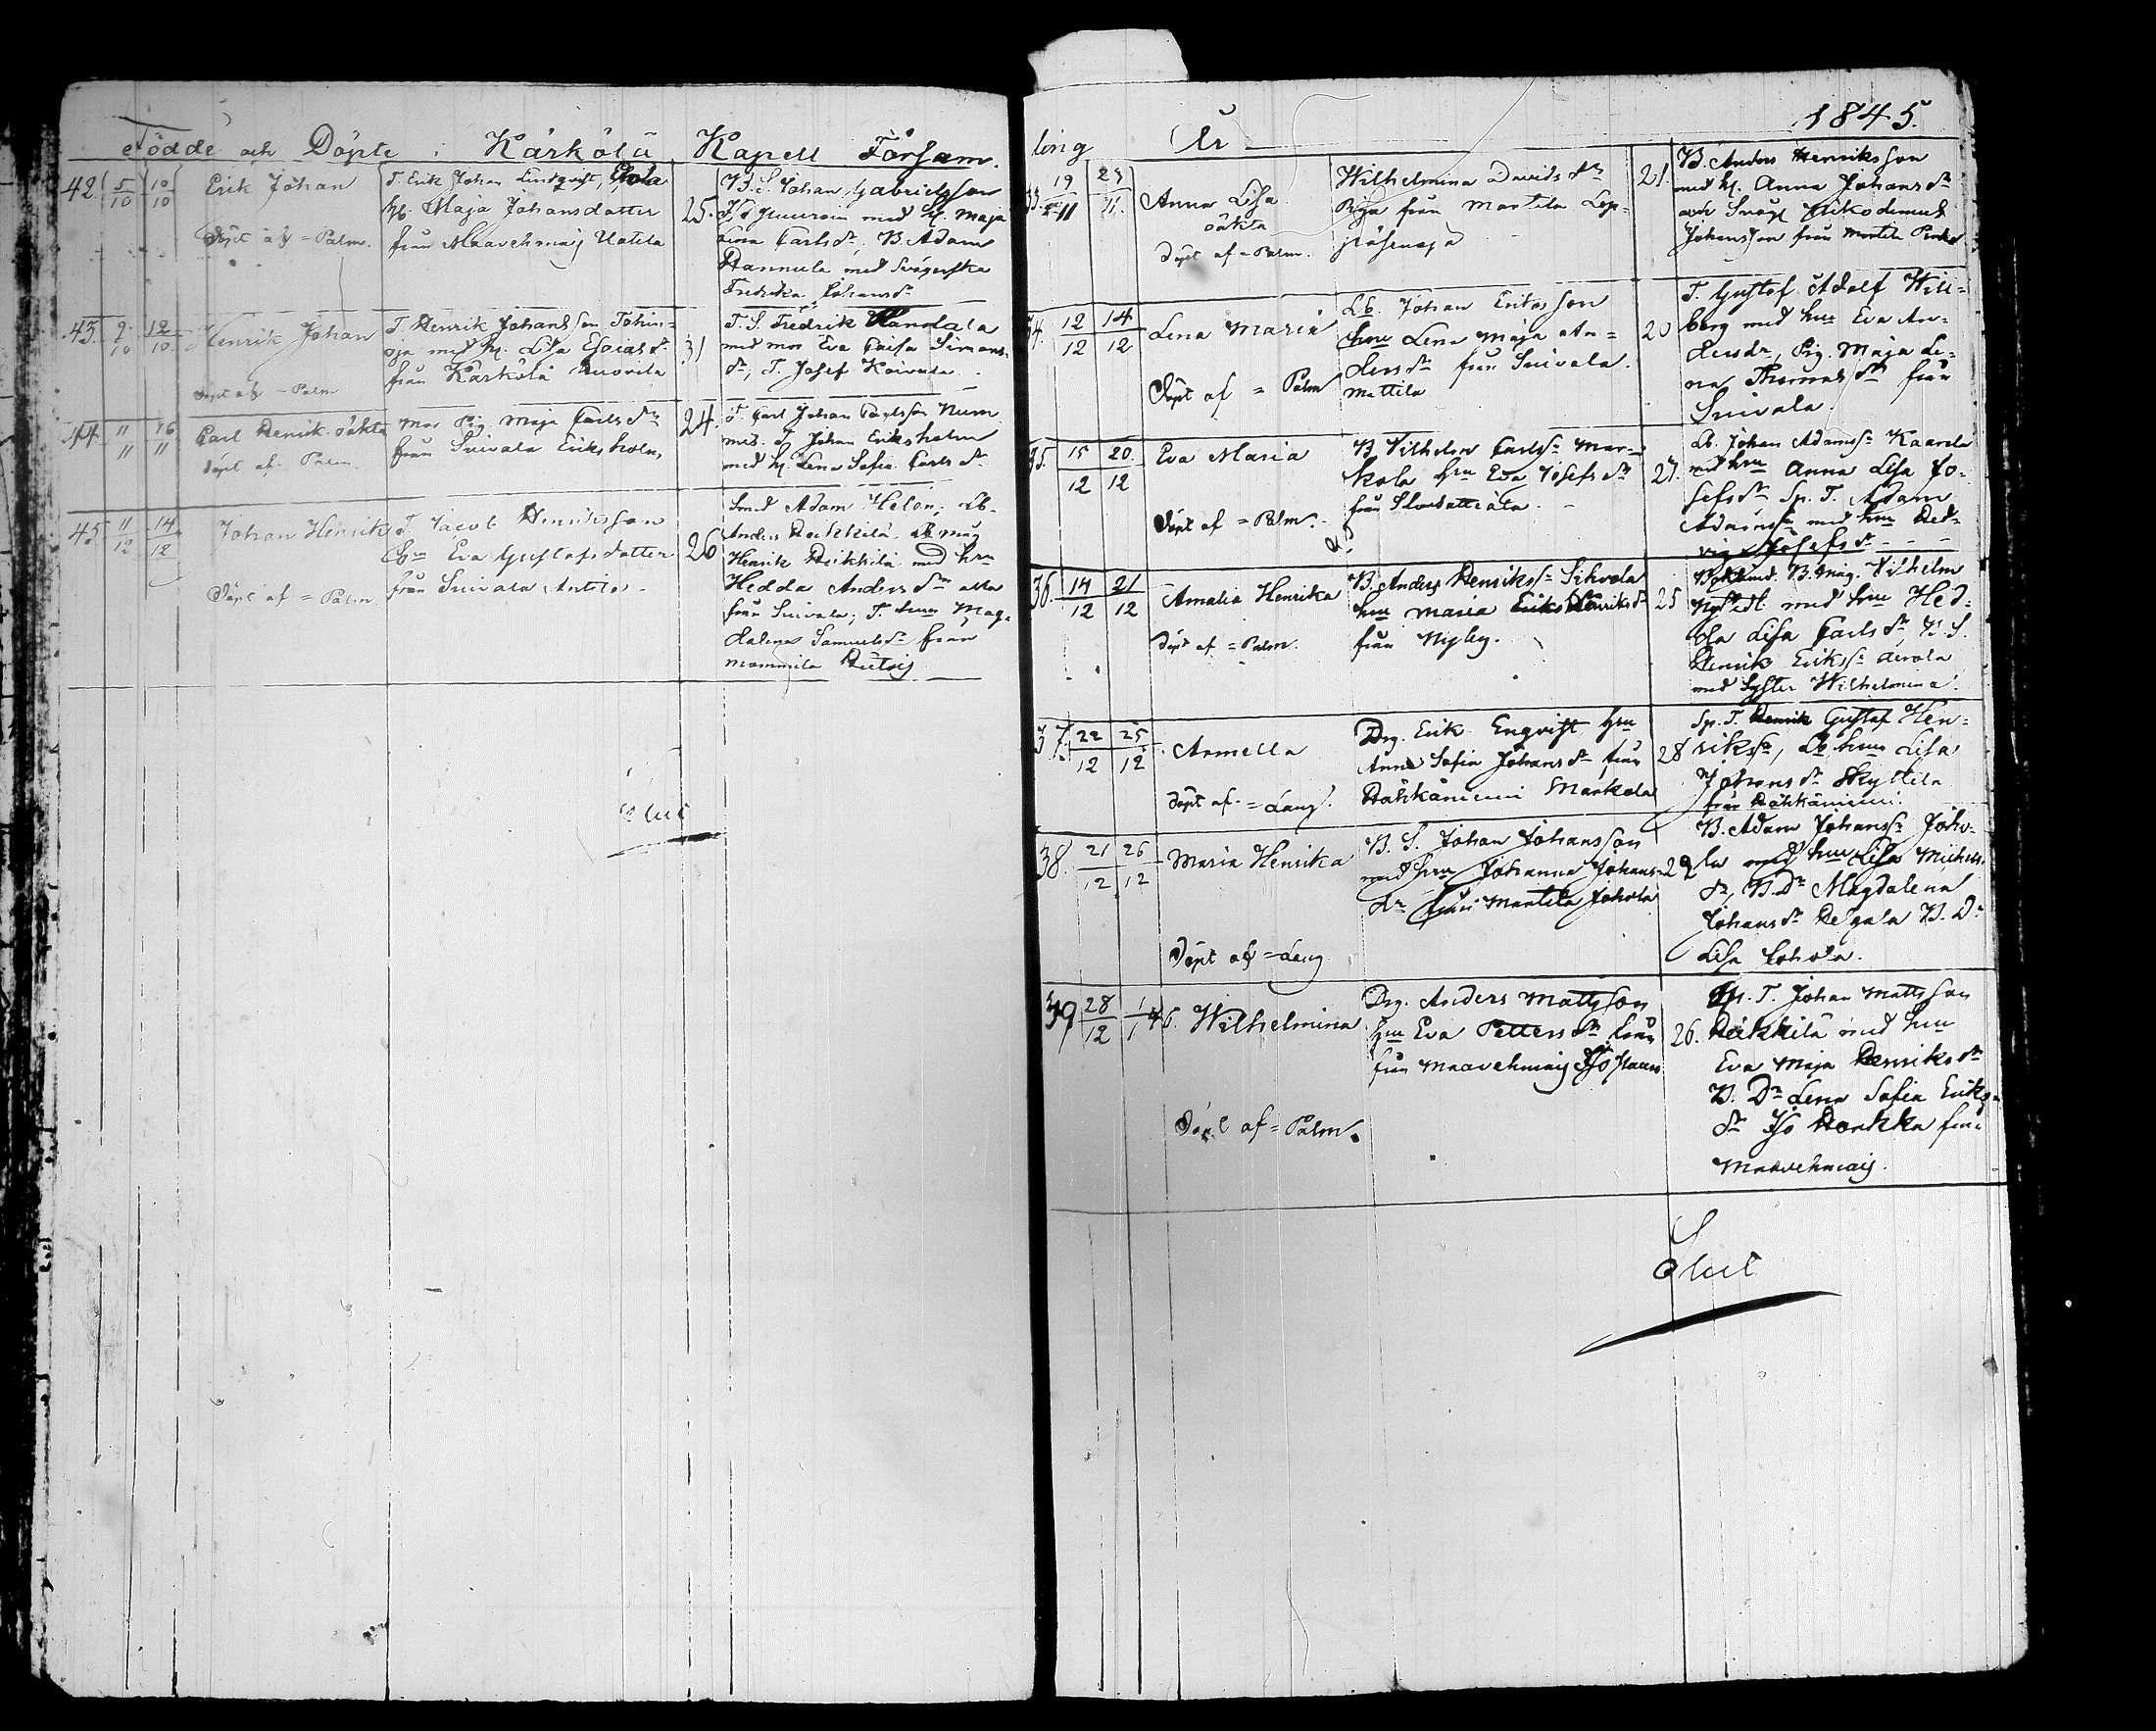 Födde och Döpte i Kärkölä Kapell Försam.
42. 5/10 10/10 Erik Johan
Döpt af = Palm.
T. Erik Johan Lindqvist,
H. Maja Johansdotter
från Maavehmaij Uotila
25.
B. S. Johan Gabrielsson
med H. Maja
Lena Carlsdr. B. Adam
Hannula med Svägerska
Fredrika Johansdr
43. 9/10 12/10 Henrik Johan
Döpt af = Palm
T. Henrik Johansson
oja med H. Lisa Esaiasdr
från Kärkölä
31
T. S. Fredrik
med mor Eva Caisa Simons
dr, T. Josef Koivula
44. 11/11 16/11 Carl Henrik oäkta
Döpt af Palm
mor Pig. Maja Carlsdr
från Suivala Eriksholm
24.
T. Carl Johan Carlsson Num
med Johan Eriksholm
med H. Lena Sofia Carlsdr
45. 11/12 14/12 Johan Henrik
Döpt af = Palm
T. Jacob Henriksson
Hru Eva Gustafsdotter
från Suivala Antila
26
Smed Adam Helen, Lb.
Anders Heikkilä, B. måg
Henrik Heikkilä med hru
Hedda Andersdr alla
från Suivala, T. hru Mag.
Halena Samuelsdr från
Mommila
Slut
ling År 1845.
33. 19/11 23/11. Anna Lisa
oäkta
Döpt af = Palm.
Wilhelmina Davidsdr
Piga från Martila Lep-
21.
B. Anders Henriksson
med H. Anna Johansdr
och Svåg. Nikodemus
Johansson från Martila
34. 12/12 14/12 Lena Maria
Döpt af = Palm
Lb. Johan Eriksson
hru Lena Maja An=
dersdr från Suivala
Mattila
20
T. Gustaf Adolf Will=
berg med hru Eva An-
dersdr, Pig. Maja Le-
na Thomasdr från
Suivala.
35. 15/12 20/12 Eva Maria
Döpt af = Palm.
B Vilhelm Carlsson Mar-
kola hru Eva Josefsdr
från
27.
Lb. Johan Adamsson Kaarela
med hru Anna Lisa Jo-
sefsdr Sp. T. Adam
Adamsson med hru Hed-
vig Josefsdr
36. 14/12 21/12 Amalia Henrika
Döpt af = Palm.
B. Anders Henriksson Sihvola
hru Maria Eriks Henriksdr
från Nyby.
25
B. måg. Vilhelm
med hru Hed-
da Lisa Carlsdr, B. S.
Henrik Eriksson
med Syster Wilhelmina.
37. 22/12 25/12 Armella
Döpt af = Lang.
Drg. Erik Engvist hru
Anna Sofia Johansdr från
Hähkäniemi Markola
28
Sp. T. Henrik Gustaf Hen=
riksson, Lb hru Lisa
Johansdr Skyttilä
från Hähkäniemi.
38. 21/12 26/12 Maria Henrika
Döpt af = Lang
B. S. Johan Johansson
med hru Johanna Johans-
dr från Martila Johola
29
B. Adam Johansson Joho-
la med hru Lisa Michels
dr, B. Dr Magdalena
Johansdr B. Dr
Lisa Johola.
39 28/12 1/1 46. Wilhelmina
Döpt af = Palm.
Drg. Anders Mattsson
hru Eva Pettersdr från
från Maavehmaij
26.
Sp. T. Johan Mattsson
Heikkilä med hru
Eva Maja Henriksdr
B. Dr Lena Sofia Eriks-
dr Iso Honkka från
Maavehmaij.
Slut